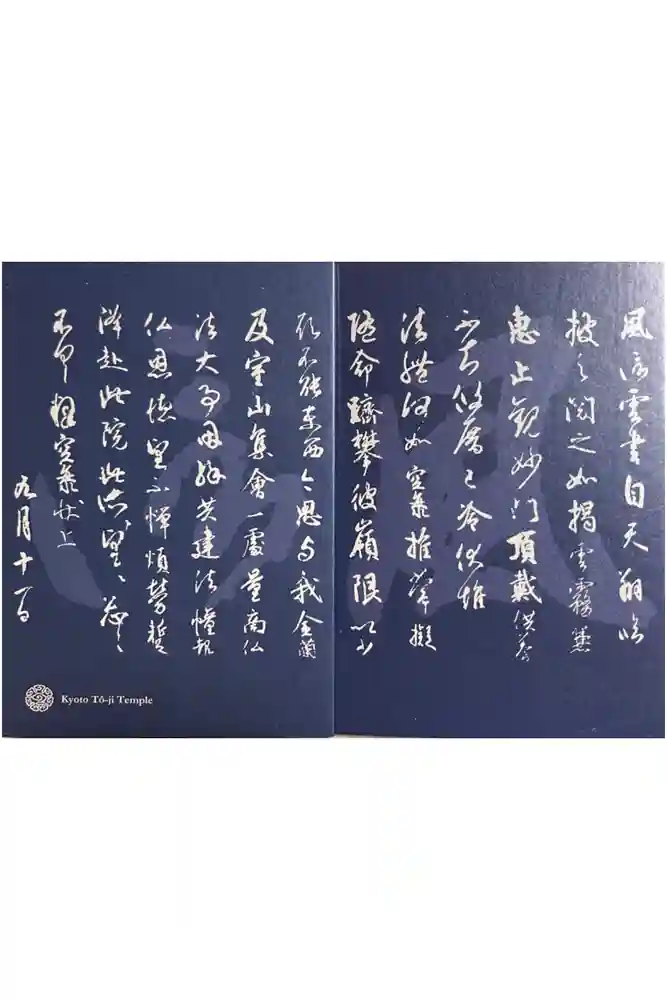 風信雲書自天翔臨
披之閲之如掲雲霧兼
恵止観妙門頂戴供養
不知攸厝已冷伏惟
法體何如空海推常擬
随命躋攀彼嶺限以少
願不能東西今思与我金蘭
及室山集會一處量商仏
法大事因縁共建法幢報
仏恩徳望不憚煩勞蹔
降赴此院此所々望々忩々
不具釋空海状上
九月十一日
Kyoto Tō-ji Temple